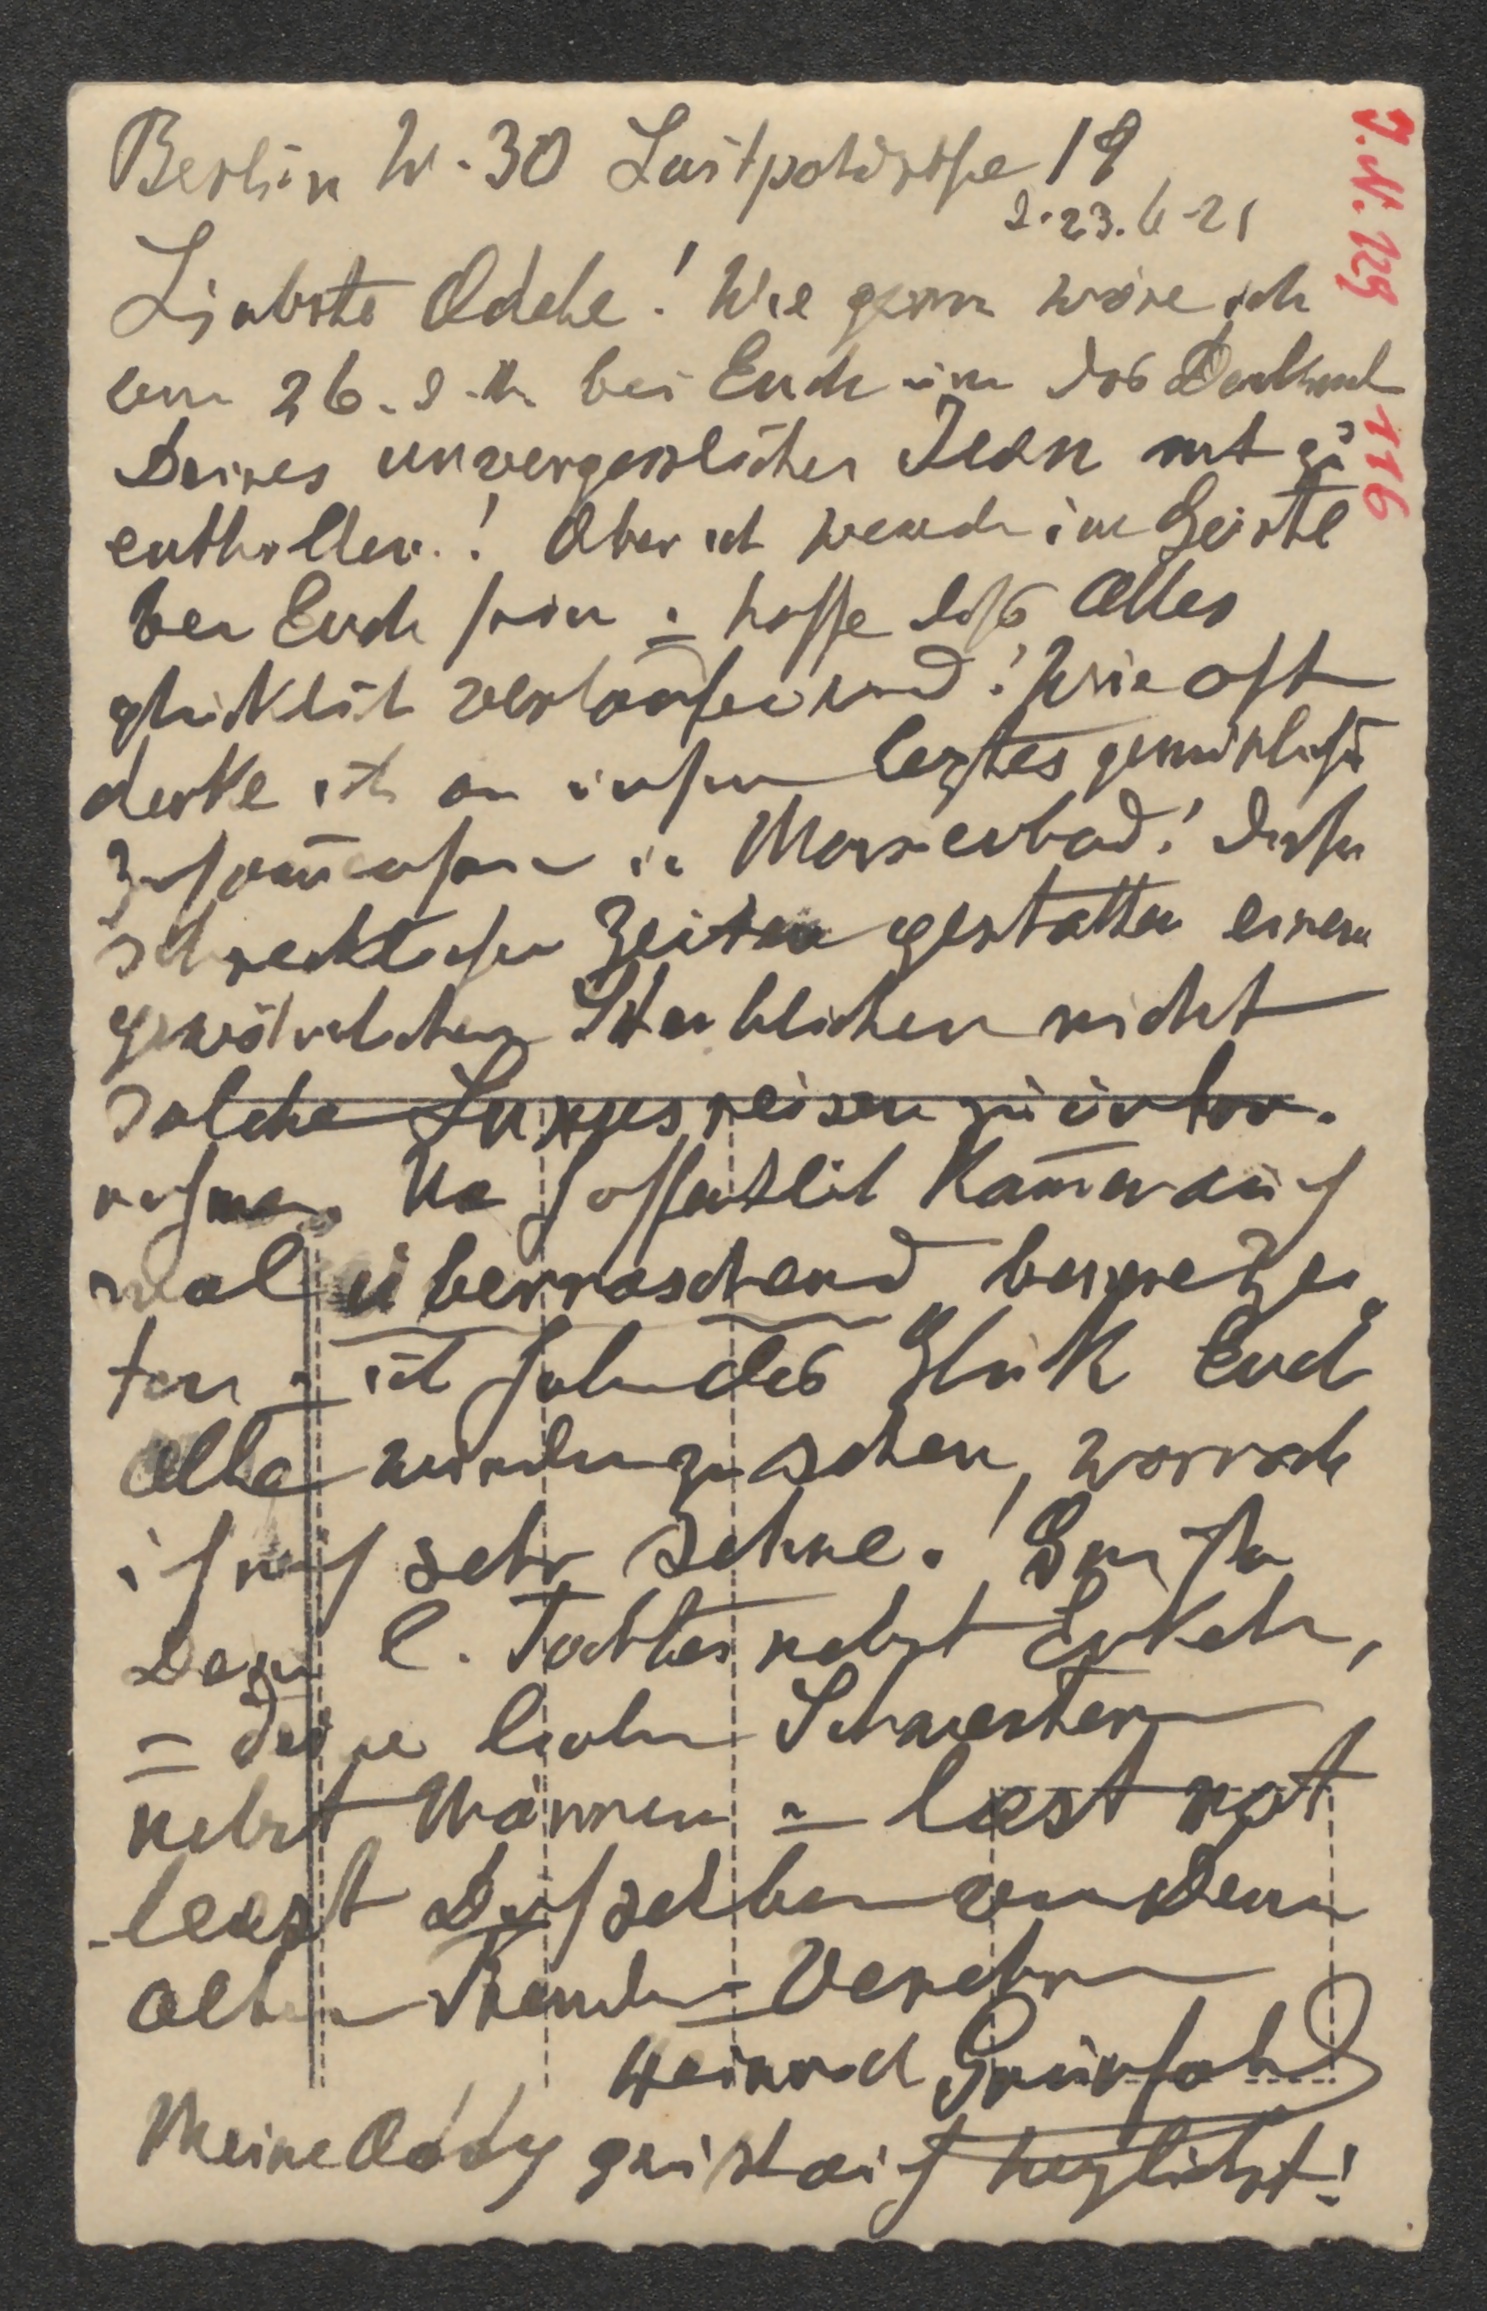 Berlin W. 30 Luitpoldstrße 19
23. 6. 21
Liebste Adele! Wie gern wäre ich
am 26. d. M. bei Euch um das Denkmal
Deines unvergesslichen Jean mit zu
enthüllen! Aber ich werde im Geiste
bei Euch sein u hoffe daß Alles
glücklich verlaufen wird! Wie oft
denke ich an unser leztes gemütliches
Zusam̄ensein in Marienbad! Diese
schrecklichen Zeiten gestatten einem
gewöhnlichen Sterblichen nicht
solche Luxusreisen zu unter-
nehmen. Na hoffentlich kom̄en auch
mal überraschend bessere Zei-
ten u ich habe das Glück Euch
Alle wiederzusehen, wonach
ich mich sehr sehne! Grüße
Deine l. Tochter nebst Enkeln,
u Deine lieben Schwestern
nebst Männern u last not
least Dich selber von Deinem
alten Freunde u Verehrer
Heinrich Grünfeld
Meine Addy grüßt auch herzlichst!
J. N. 129 116